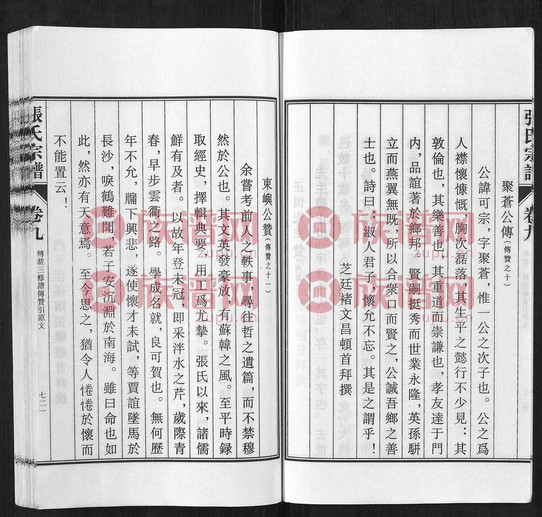 張氏宗譜
卷九
聚蒼公傳(傳贊之十)
公諱可宗，字聚蒼，惟一公之次子也。公之爲
人襟懷慷慨，胸次磊落，其生平之懿行不少見：其
敦倫也，其樂善也，其重道而崇謙也，孝友達于門
内，品誼著於鄉邦。賢嗣挺秀而世業永隆，英孫駢
立而燕翼無既，所以合衆口而賢之，公誠吾鄉之善
士也。詩曰：淑人君子，懷允不忘。其是之謂乎！
芝廷褚文昌頓首拜撰
東嶼公贊(傳贊之十一)
余嘗考前人之軼事，尋往哲之遺篇，而不禁穆
然於公也。其文英發豪放，有蘇韓之風。至平時録
取經史，擇輯典要，用工爲尤摯。張氏以來，諸儒
鮮有及者。以故年登未冠，即采泮水之芹，歲際青
春，早步雲衢之路。學成名就，良可賀也。無何歷
年不允，牖下興悲，遂使懷才未試，等賈誼墜馬於
長沙，唳鶴難聞，若子安沉淵於南海。雖曰命也如
此，然亦有天意焉。至今思之，猶令人倦倦於懷而
不能置云！
張氏宗譜
卷九
轉載三修譜傳贊引源文
七二一
族譜网
族譜网
族譜网
族譜网